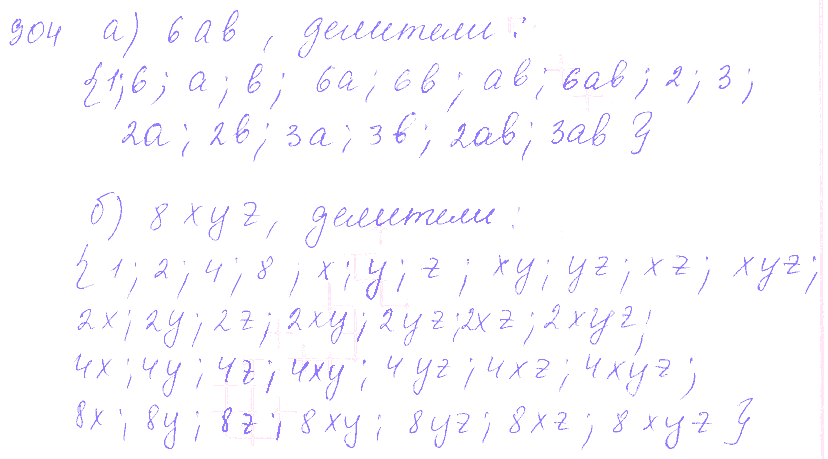 904 а) 6ав, делители:
{1; 6; а; в; 6а; 6в; ав; 6ав; 2; 3;
2а; 2в; 3а; 3в; 2ав; 3ав}
б) 8xyz, делители:
{1; 2; 4; 8; x; y; z; xy; yz; xz; xyz;
2x; 2y; 2z; 2xy; 2yz; 2xz; 2xyz;
4x; 4y; 4z; 4xy; 4yz; 4xz; 4xyz;
8x; 8y; 8z; 8xy; 8yz; 8xz; 8xyz}